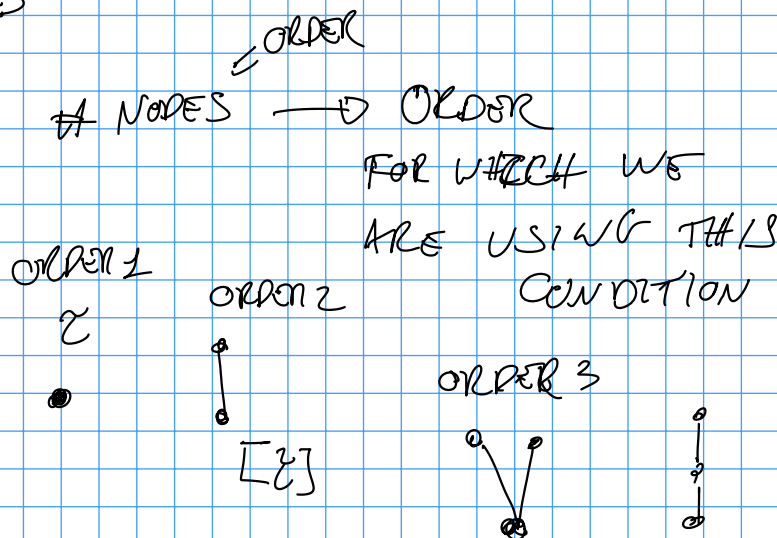 ORDER
# NODES → ORDER
FOR WHICH WE
ARE USING THIS
CONDITION
ORDER 1
τ
ORDER 2
[τ]
ORDER 3